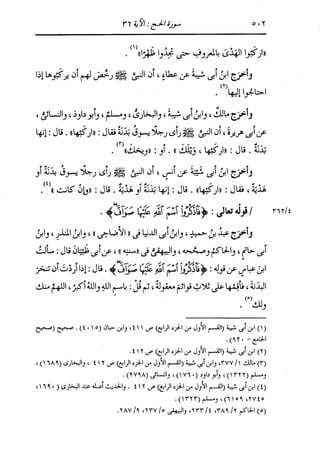 ٥٠٢ سورة الحج : الآية ٣٦
«اركبوا الهدىَ بالمعروفِ حتى تجدوا ظَهْرًا» (١) .
وأخرَج ابنُ أبى شيبةَ عن عطاءٍ ، أن النبىَّ ﷺ رخَّص لهم أن يركبوها إذا
احتاجوا إليها (٢) .
وأخرَج مالكٌ ، وابنُ أبى شيبةَ ، والبخارىُّ ، ومسلمٌ ، وأبو داودَ ، والنسائىُّ ،
عن أبى هريرةَ ، أن النبىَّ ﷺ رأى رجلًا يسوقُ بَدَنةً فقال : «اركبْها» . قال : إنها
بَدَنةٌ . قال : «اركبْها ، ويْلَكَ» . أو : «ويحَك» (٣) .
وأخرَج ابنُ أبى شيبةَ عن أنسٍ ، أن النبىَّ ﷺ رأى رجلًا يسوقُ بدنةً أو
هَدِيَّةً ، فقال : «اركبْها» . قال : إنها بَدَنةٌ أو هَدِيَّةٌ . قال : «وإن كانت» (٤) .
٣٦٢/٤ / قولُه تعالى : ﴿فَاذْكُرُوا اسْمَ اللَّهِ عَلَيْهَا صَوَافَّ﴾ .
وأخرَج عبدُ بنُ حميدٍ ، وابنُ أبى الدنيا فى «الأضاحى» ، وابنُ المنذرِ ، وابنُ
أبى حاتمٍ ، والحاكمُ وصحَّحه ، والبيهقىُّ فى «سننِه» ، عن أبى ظَبيانَ قال : سألتُ
ابنَ عباسٍ عن قولِه : ﴿فَاذْكُرُوا اسْمَ اللَّهِ عَلَيْهَا صَوَافَّ﴾ . قال : إذا أردتَ أن تنحَرَ
البدنةَ ، فأقِمْها على ثلاثِ قوائمَ معقولةً ، ثم قُلْ : باسمِ اللهِ واللهُ أكبرُ ، اللهم منك
ولك (٥) .
(١) ابن أبى شيبة (القسم الأول من الجزء الرابع) ص ٤١١، وابن حبان (٤٠١٥) . صحيح (صحيح
الجامع - ٩٢٠) .
(٢) ابن أبى شيبة (القسم الأول من الجزء الرابع) ص ٤١٢.
(٣) مالك ٣٧٧/١، وابن أبى شيبة (القسم الأول من الجزء الرابع) ص ٤١٢ ، والبخارى (١٦٨٩) ،
ومسلم (١٣٢٢) ، وأبو داود (١٧٦٠) ، والنسائى (٢٧٩٨) .
(٤) ابن أبى شيبة (القسم الأول من الجزء الرابع) ص ٤١٢ . والحديث أصله عند البخارى (١٦٩٠ ،
٢٧٥٤، ٦١٥٩) ، ومسلم (١٣٢٣) .
(٥) الحاكم ٣٨٩/٢، ٢٣٣/٤، والبيهقى ٢٣٧/٥، ٢٨٧/٩.